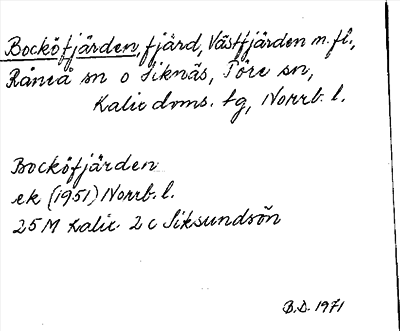 Bocköfjärden, fjärd, Västfjärden m. fl.,
Råneå sn o Siknäs, Töre sn,
Kalix doms. tg, Norrb. l.
Bocköfjärden
ek (1951) Norrb. l.
25M Kalix 2c Siksundsön
B.D. 1971